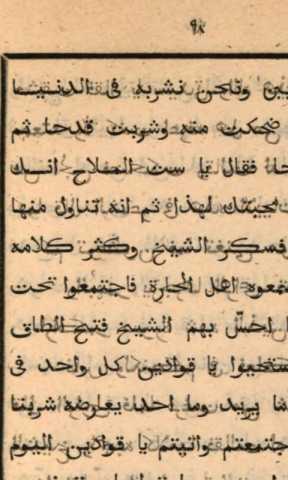 ٩٨
ونحن نشربه في الدنيا
ضحكت منه وشربت قدحا ثم
فقال يا ست الملاح انك
لهذا ثم انه تناول منها
فسكر الشيخ وكثر كلامه
اهل الحارة فاجتمعوا تحت
احسّ بهم الشيخ فتح الطاق
يا قوادين كل واحد في
يريد وما احد يعارضه شربنا
اجتمعتم واتيتم يا قوادين اليوم